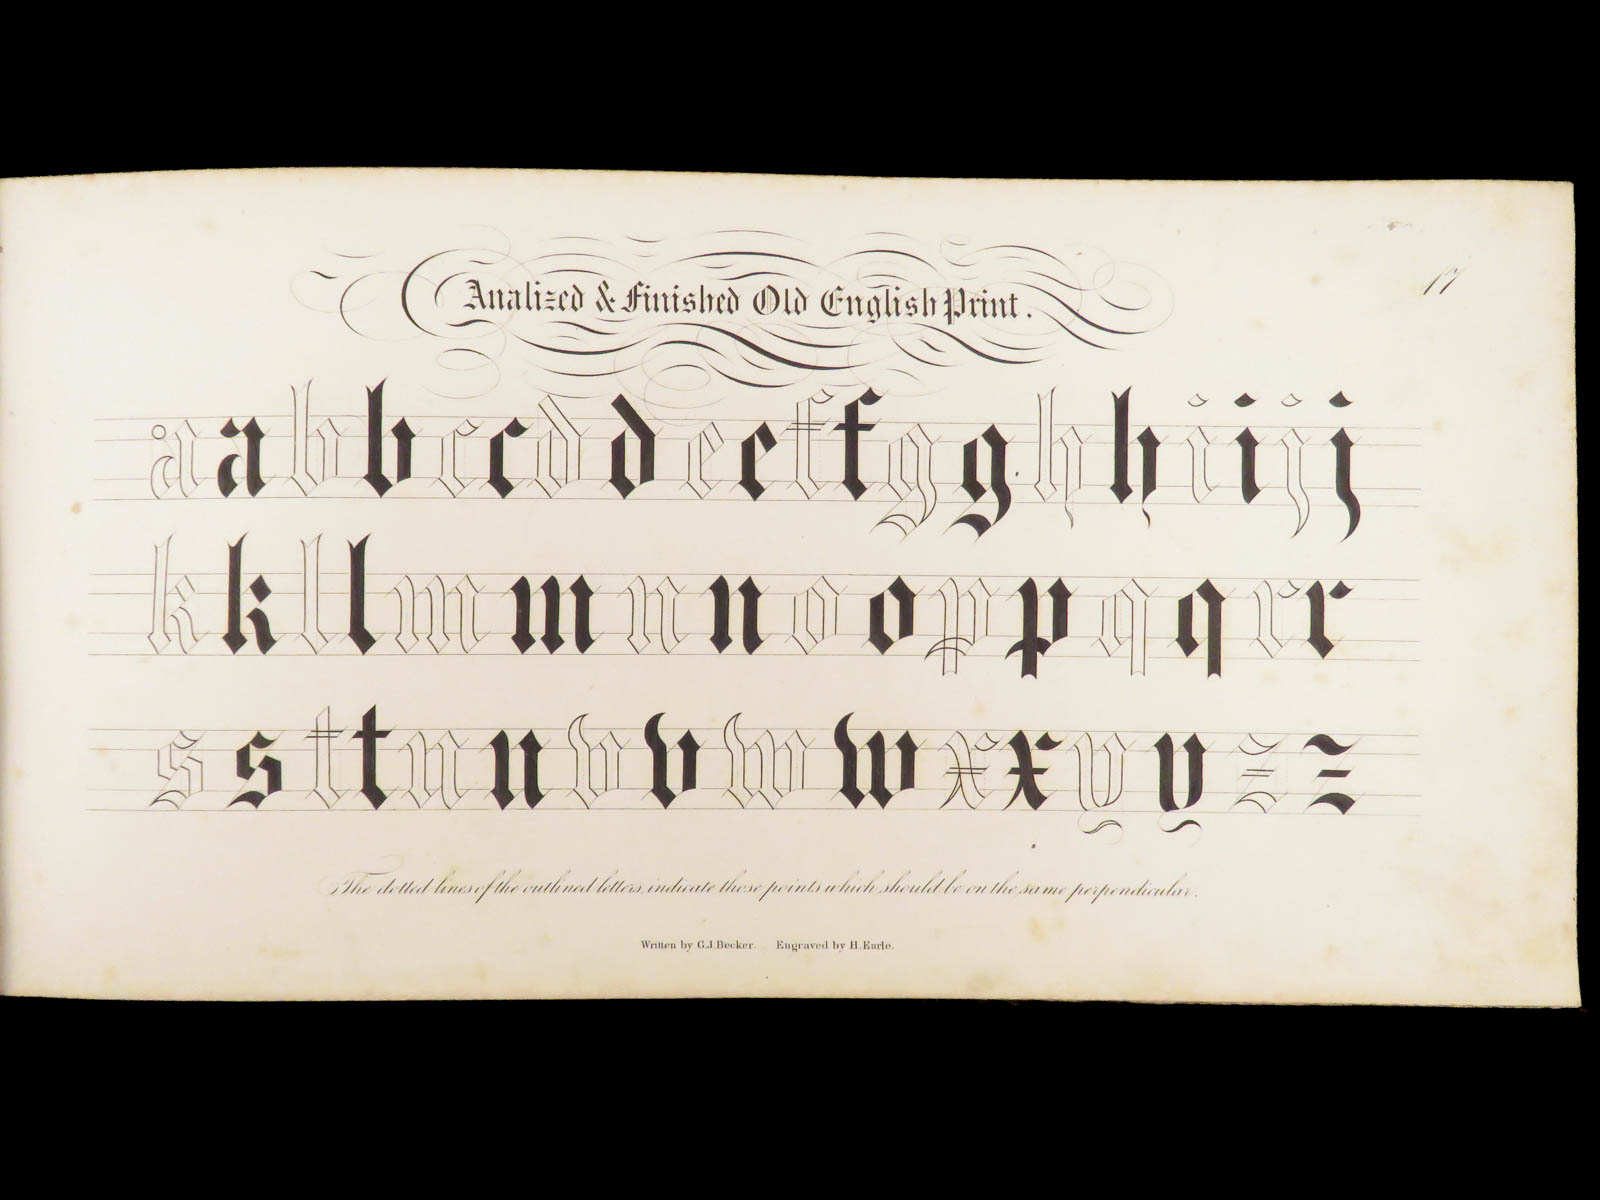 17
Analized & Finished Old English Print.
a a b b c c d d e e f f g g h h i i j j
k k l l m m n n o o p p q q r r
s s t t u u v v w w x x y y z z
The dotted lines of the outlined letters, indicate those points which should be on the same perpendicular.
Written by G.J. Becker. Engraved by H. Earle.